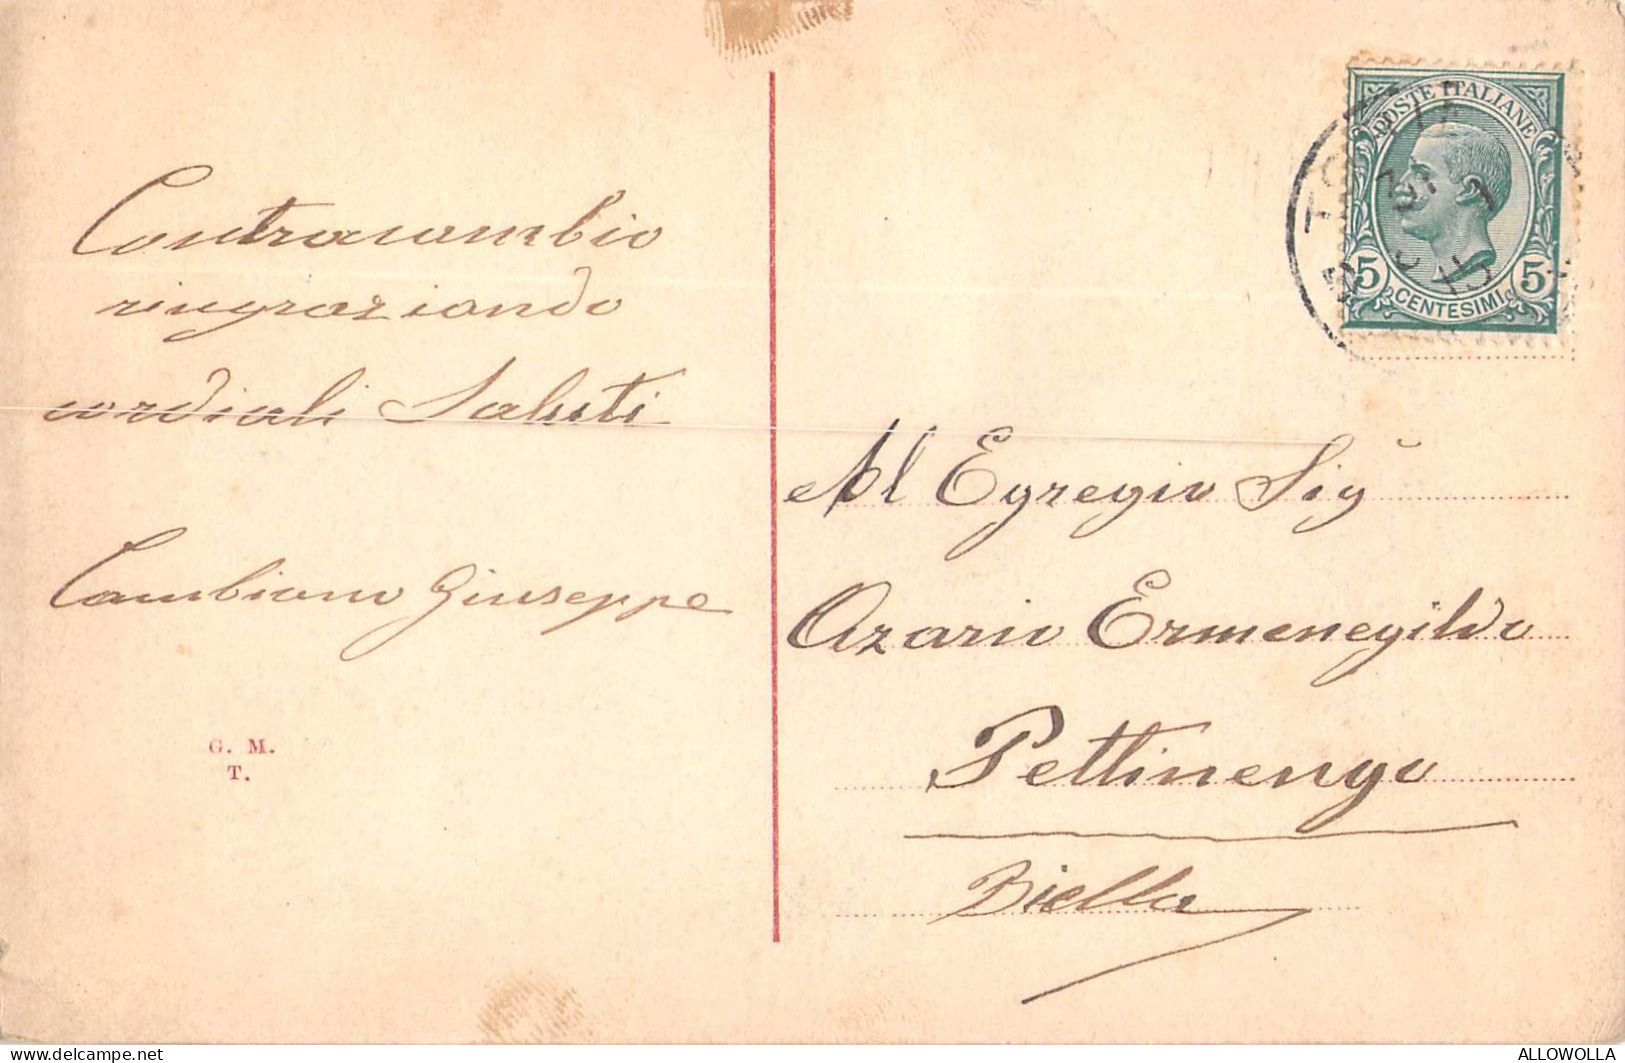 Contracambio
ringraziando
cordiali Saluti
Cambiano Giuseppe
G. M.
T.
POSTE ITALIANE
5 CENTESIMI 5
Al Egregio Sig
Azario Ermenegildo
Pettinengo
Biella
delcampe.net
ALLOWOLLA